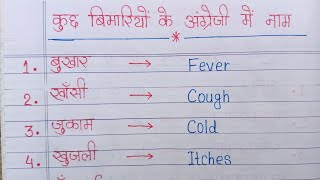 कुछ बिमारियों के अंग्रेजी में नाम
*
1. बुखार → Fever
2. खाँसी → Cough
3. जुकाम → Cold
4. खुजली → Itches